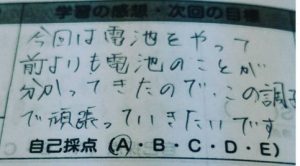 学習の感想・次回の目標
今回は電池をやって
前よりも電池のことが
分かってきたので、この調子
で頑張っていきたいです
自己採点(A・B・C・D・E)